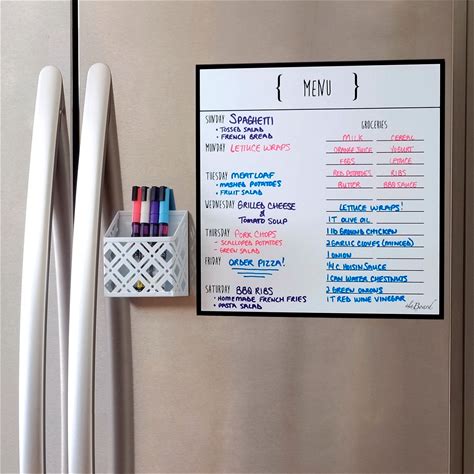 { MENU }
SUNDAY SPAGHETTI
• TOSSED SALAD
• FRENCH BREAD
MONDAY LETTUCE WRAPS
TUESDAY MEATLOAF
• MASHED POTATOES
• FRUIT SALAD
WEDNESDAY GRILLED CHEESE
& TOMATO SOUP
THURSDAY PORK CHOPS
- SCALLOPED POTATOES
- GREEN SALAD
FRIDAY ORDER PIZZA!
SATURDAY BBQ RIBS
• HOMEMADE FRENCH FRIES
• PASTA SALAD
GROCERIES
MILK CEREAL
ORANGE JUICE YOGURT
EGGS LETTUCE
RED POTATOES RIBS
BUTTER BBQ SAUCE
LETTUCE WRAPS!
1T OLIVE OIL
1 lb GROUND CHICKEN
2 GARLIC CLOVES (MINCED)
1 ONION
1/4 C HOISIN SAUCE
1 CAN WATER CHESTNUTS
2 GREEN ONIONS
1T RED WINE VINEGAR
theBoard